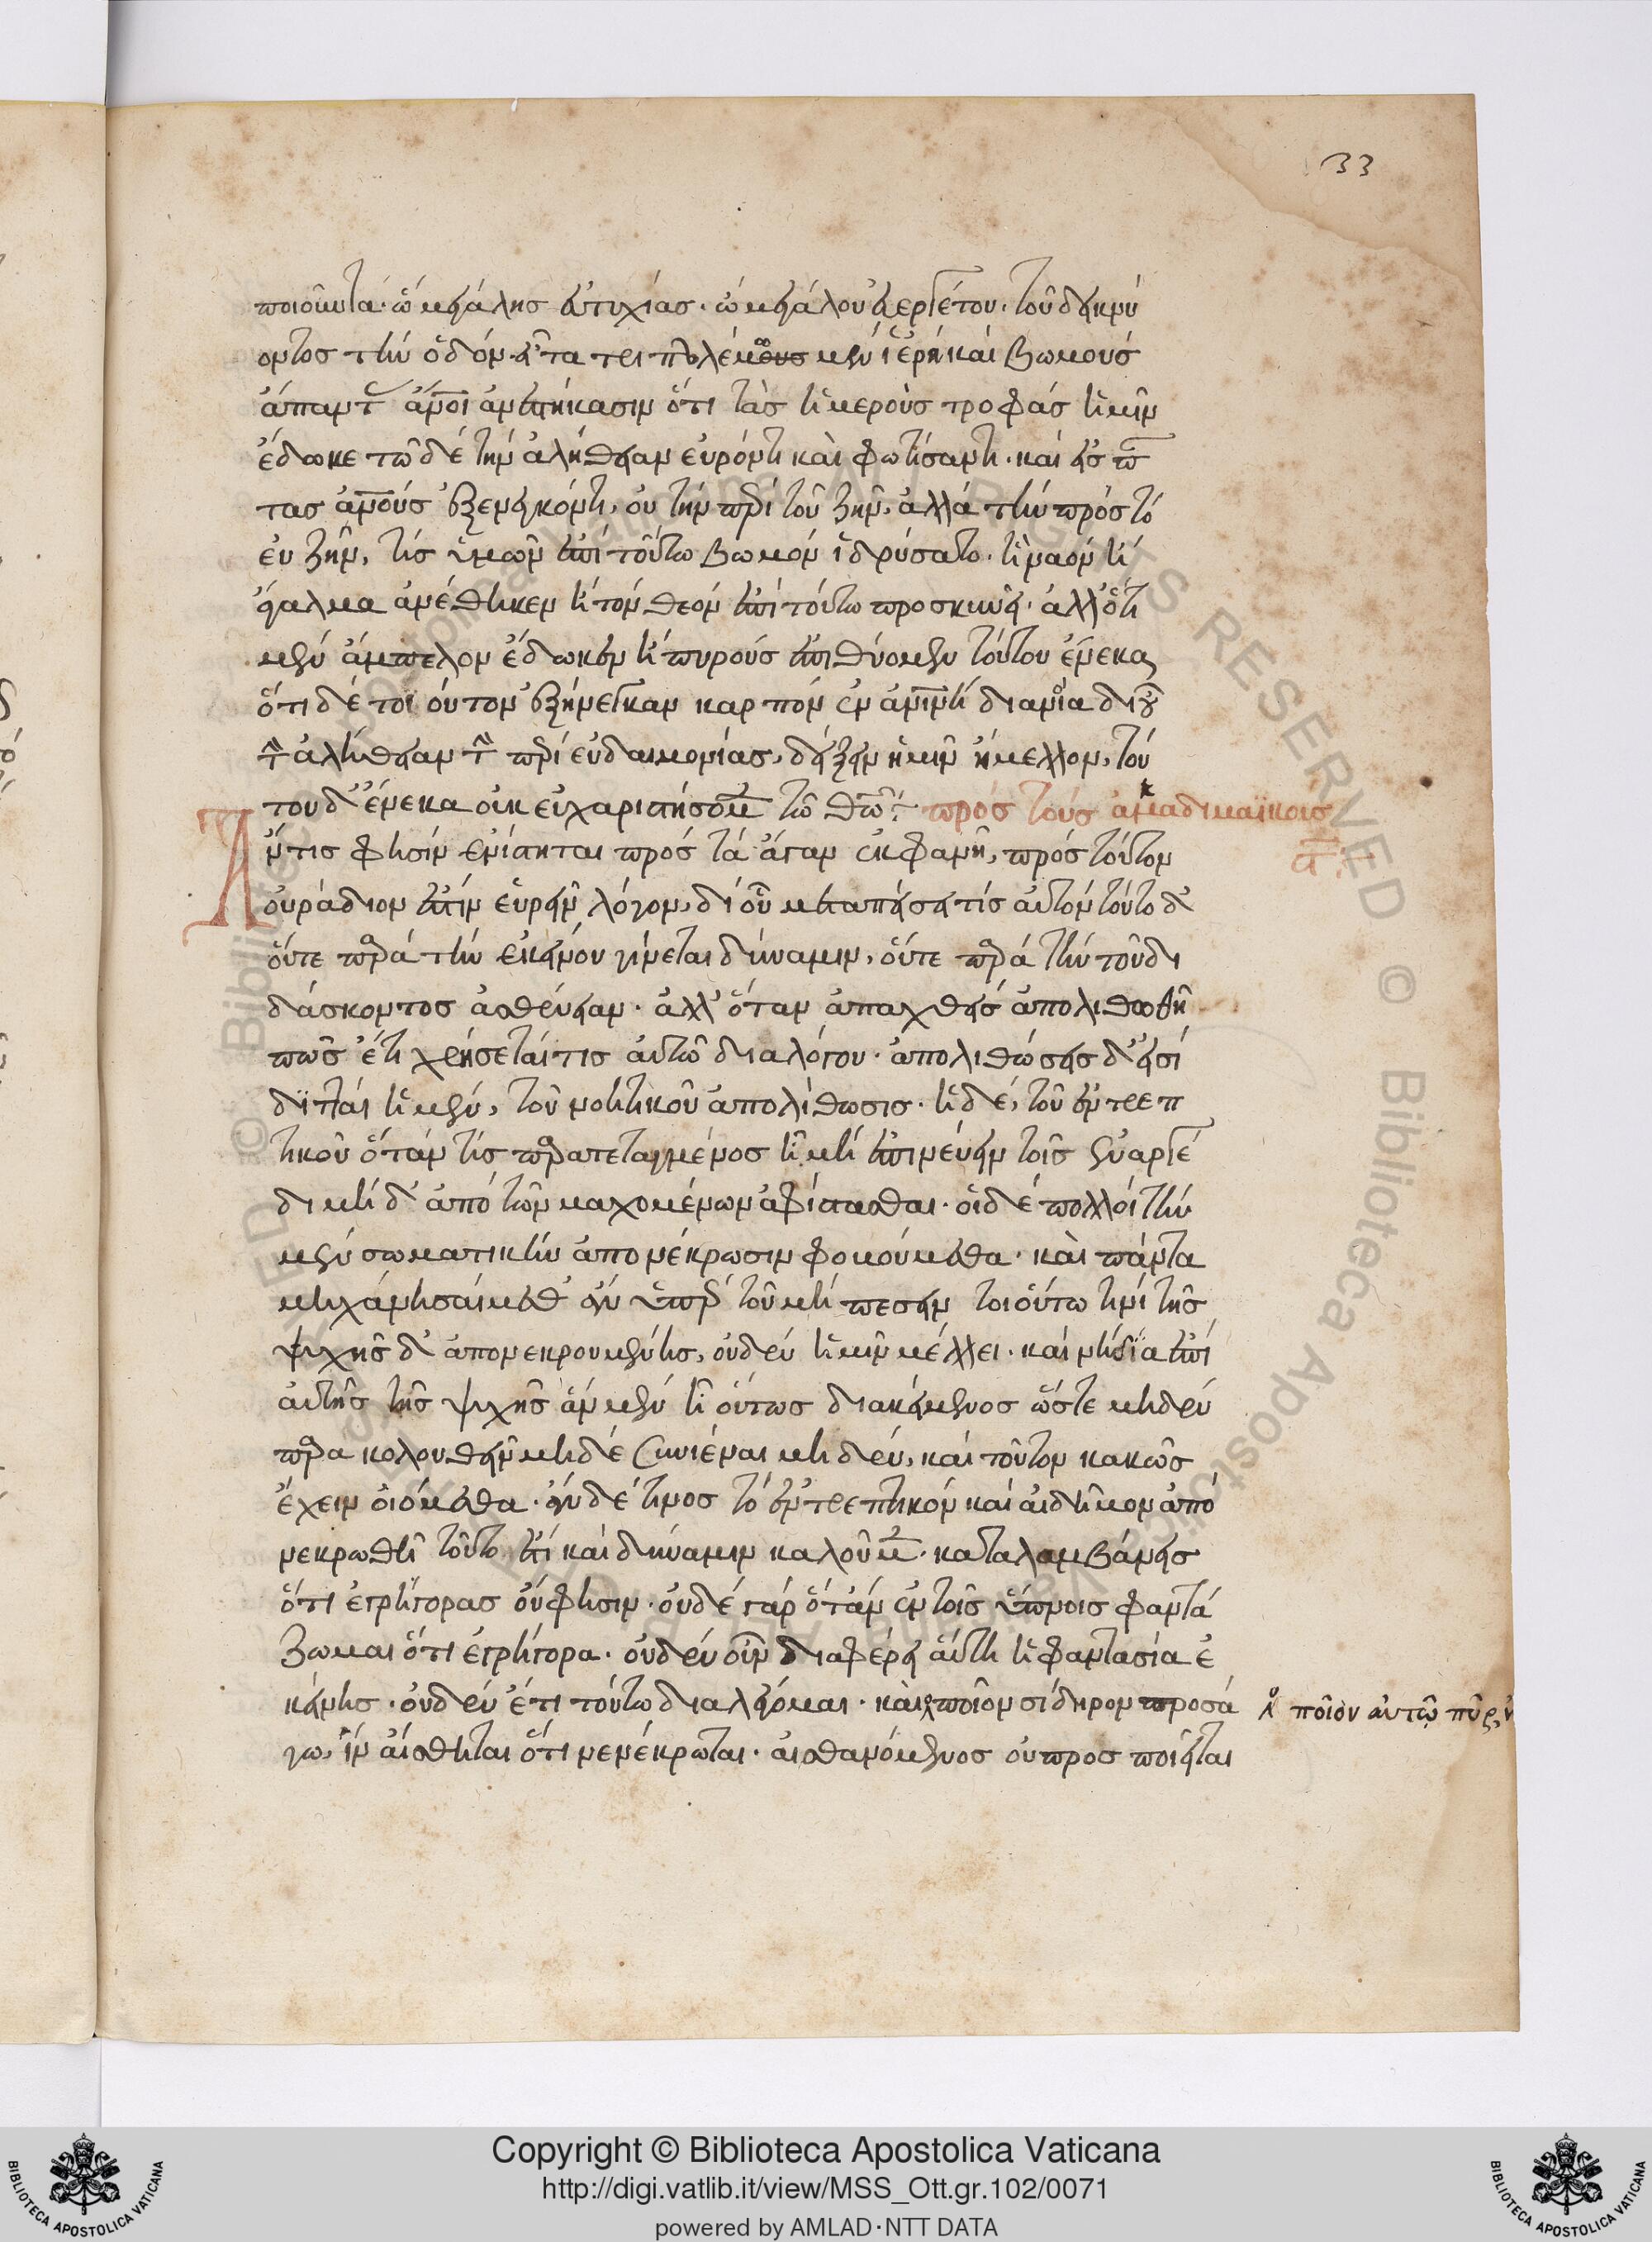 33
ποιοῦντα· ὦ μεγάλης εὐτυχίας· ὦ μεγάλου εὐεργέτου· τοῦ δεικνύ
οντος τὴν ὁδόν· εἶτα τριπτολέμῳ μὲν ἱερὴ καὶ βωμοὺς
ἅπαντες ἄνθρωποι ἀνεστήκασιν ὅτι τὰς ἡμέρους τροφὰς ἡμῖν
ἔδωκε τῶ δὲ τὴν ἀλήθειαν εὑρόντι καὶ φωτίσαντι· καὶ εἰς πάν
τας ἀνθρώπους ἐξενεγκόντι, οὐ τὴν περὶ τοῦ ζῆν, ἀλλὰ τὴν πρὸς τὸ
εὖ ζῆν, τίς ὑμῶν ἐπὶ τούτω βωμὸν ἱδρύσατο· ἢ ναὸν ἢ
ἄγαλμα ἀνέθηκεν ἢ τὸν θεὸν ἐπὶ τούτω προσκυνεῖ· ἀλλ' ὅτι
μὲν ἄμπελον ἔδωκεν ἢ πυροὺς ἐπιθύομεν τούτου ἕνεκα
ὅτι δὲ τοιοῦτον ἐξήνεγκαν καρπὸν ἐν ἀνθρωπίνη διανοία δι' οὗ
τὴν ἀλήθειαν τὴν περὶ εὐδαιμονίας, δείξειν ἡμῖν ἤμελλον, τού
του δ' ἕνεκα οὐκ εὐχαριστήσομεν τῶ θεῶ: πρὸς τοὺς ἀκαδημαϊκοὺς
ἄν τις φησὶν ἐνίστηται πρὸς τὰ ἄγαν ἐκφανῆ, πρὸς τοῦτον
οὐ ῥάδιον ἐστὶν εὑρεῖν λόγον, δι' οὗ μεταπείσει τίς αὐτὸν τοῦτο δ'
οὔτε παρὰ τὴν ἐκείνου γίνεται δύναμιν, οὔτε παρὰ τὴν τοῦ δι
δάσκοντος ἀσθένειαν· ἀλλ' ὅταν ἀπαχθεὶς ἀπολιθωθῆ
πῶς ἔτι χρήσεταί τις αὐτῶ διαλόγου· ἀπολιθώσεις δ' εἰσὶ
διτταὶ ἡ μὲν, τοῦ νοητικοῦ ἀπολίθωσις· ἡ δὲ, τοῦ ἐντρεπ
τικοῦ ὅταν τίς παρατεταγμένος ἦ μὴ ἐπινεύειν τοῖς ἐναργέ
σι μὴ δ' ἀπὸ τῶν μαχομένων ἀφίστασθαι· οἱ δὲ πολλοὶ τὴν
μὲν σωματικὴν ἀπονέκρωσιν φοβούμεθα· καὶ πάντα
μηχανησαίμεθ' ἂν ὑπὲρ τοῦ μὴ πεσεῖν τοιούτω τινὶ τῆς
ψυχῆς δ' ἀπονεκρουμένης, οὐδὲν ἡμῖν μέλλει· καὶ νὴ δία ἐπὶ
αὐτῆς τῆς ψυχῆς ἂν μὲν ἦ οὕτως διακείμενος ὥστε μηδὲν
παρακολουθεῖν μηδὲ συνιέναι μηδὲν, καὶ τοῦτον κακῶς
ἔχειν οἰόμεθα· ἂν δέ τινος τὸ ἐντρεπτικὸν καὶ αἰδῆμον ἀπο
νεκρωθῆ τοῦτο ἔτι καὶ δύναμιν καλοῦμεν· καταλαμβάνεις
ὅτι ἐγρήγορας οὔ φησιν· οὐδὲ γὰρ ὅταν ἐν τοῖς ὕπνοις φαντά
ζωμαι ὅτι ἐγρήγορα· οὐδὲν οὖν διαφέρει αὕτη ἡ φαντασία ἐ
κείνης· οὐδὲν ἔτι τούτω διαλέγομαι· καὶ ποῖον σίδηρον προσά
ποῖον αὐτῷ πῦρ, ἢ
γω, ἵν αἴσθηται ὅτι νενέκρωται· αἰσθανόμενος οὐ προσποιεῖται
Copyright © Biblioteca Apostolica Vaticana
http://digi.vatlib.it/view/MSS_Ott.gr.102/0071
powered by AMLAD·NTT DATA